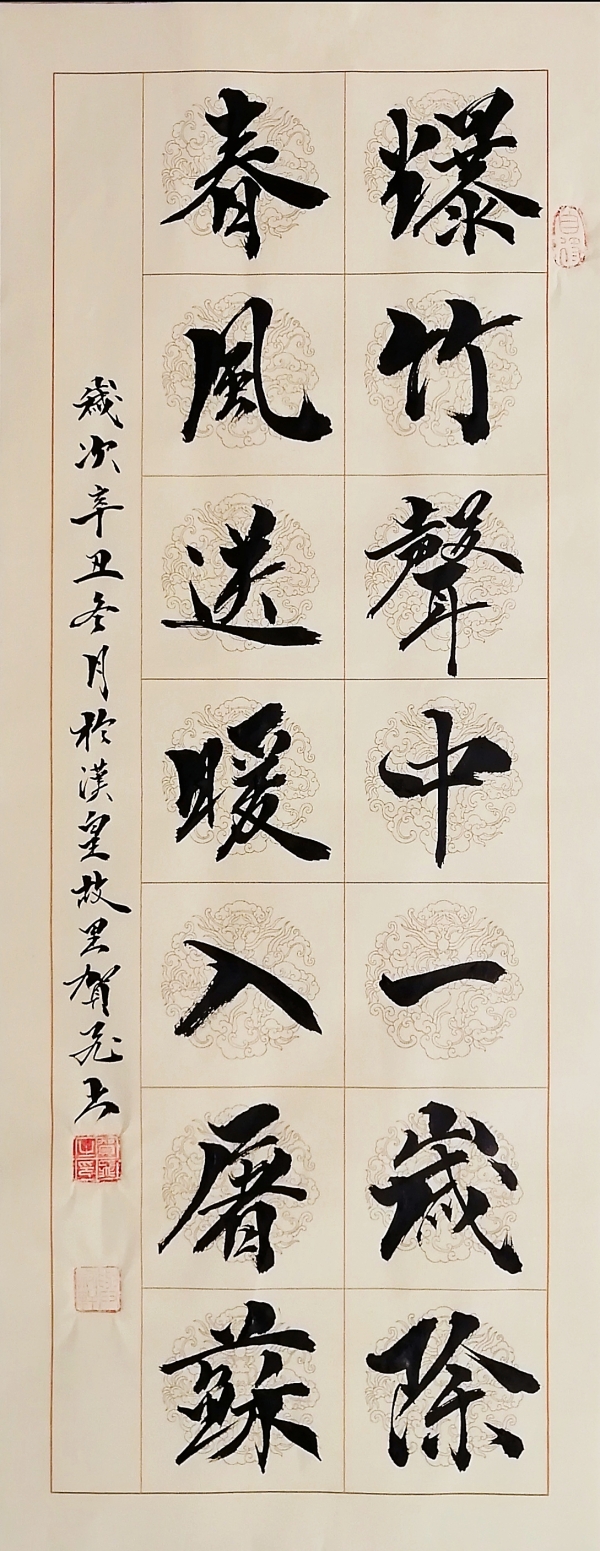 爆竹聲中一歲除
春風送暖入屠蘇
歲次辛丑冬月於漢皇故里賀飛書